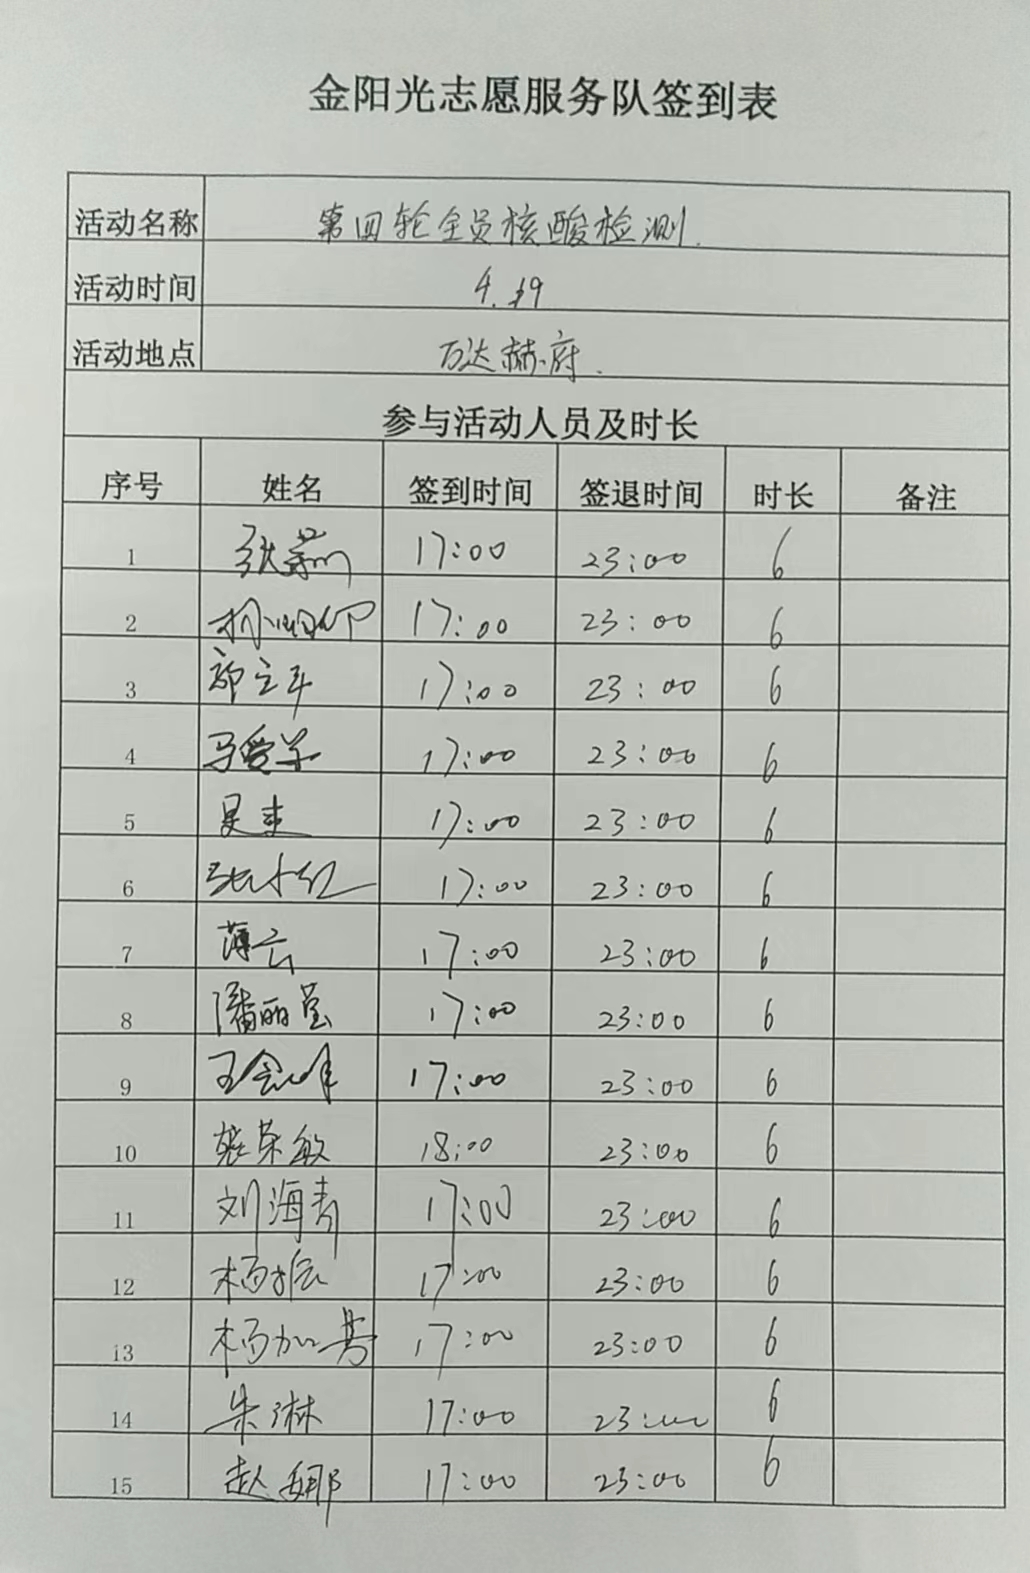 金阳光志愿服务队签到表
活动名称 第四轮全员核酸检测.
活动时间 4.19
活动地点 万达赫府.
参与活动人员及时长
序号 姓名 签到时间 签退时间 时长 备注
1 张 17:00 23:00 6
2 17:00 23:00 6
3 郭立平 17:00 23:00 6
4 马爱华 17:00 23:00 6
5 17:00 23:00 6
6 张小红 17:00 23:00 6
7 薄云 17:00 23:00 6
8 潘丽莹 17:00 23:00 6
9 王 17:00 23:00 6
10 张荣敏 18:00 23:00 6
11 刘海青 17:00 23:00 6
12 杨振 17:00 23:00 6
13 杨加 17:00 23:00 6
14 朱琳 17:00 23:00 6
15 赵娜 17:00 23:00 6